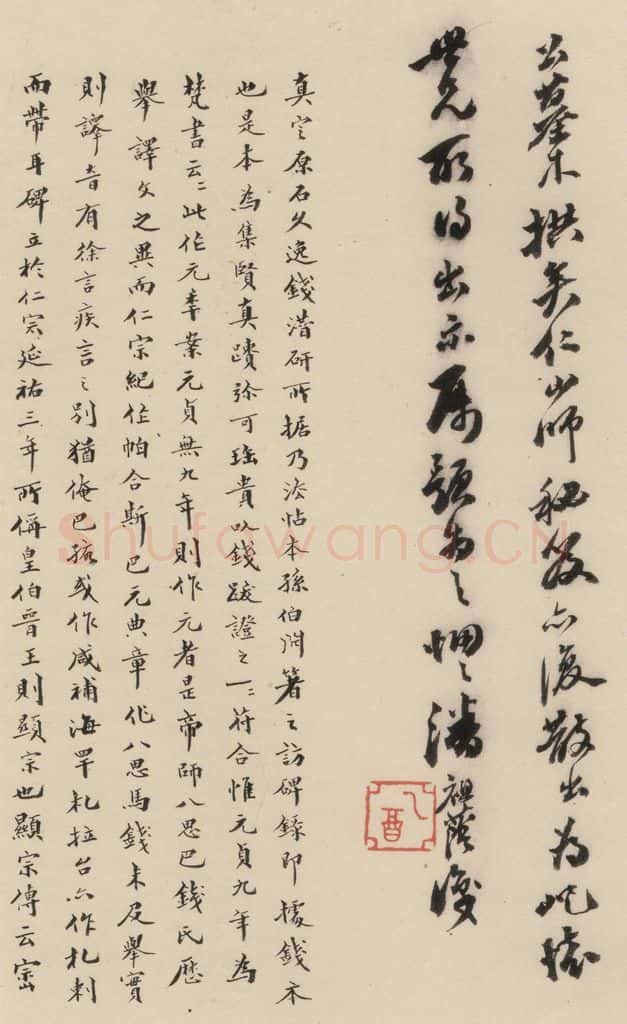 公墓木拱矣仁山師秘笈亦復散出為屺懷
世兄所得出示屬題為之惘惘潘祖蔭識
真定原石久逸錢潛研所據乃法帖本孫伯淵箸之訪碑錄即據錢本
也是本為集賢真蹟弥可珤貴以錢跋證之一二符合惟元貞九年為
梵書云云此作元季案元貞無九年則作元者是帝師八思巴錢氏歷
舉譯文之異而仁宗紀作帕合斯巴元典章作八思馬錢未及舉實
則譯音有徐言疾言之別猶俺巴孩或作咸補海罕札拉台亦作札剌
而帶耳碑立於仁宗延祐三年所偁皇伯晉王則顯宗也顯宗傳云崇
Shufawang.CN